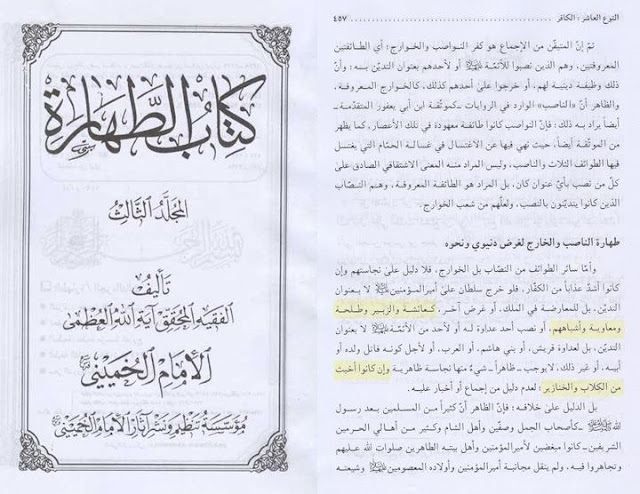 كتاب الطهارة
المجلد الثالث
تأليف
الفقيه المحقق آية الله العظمى
الإمام الخميني
مؤسسة تنظيم ونشر آثار الإمام الخميني
النوع العاشر : الكافر ٤٥٧
ثمّ إنّ المتيقّن من الإجماع هو كفر النواصب والخوارج؛ أي الطائفتين
المعروفتين، وهم الذين نصبوا للأئمّة أو لأحدهم بعنوان التديّن به؛ وأنّ
ذلك وظيفة دينية لهم، أو خرجوا على أحدهم كذلك، كالخوارج المعروفة،
والظاهر أنّ «الناصب» الوارد في الروايات ـ كموثّقة ابن أبي يعفور المتقدّمة ـ
أيضاً يراد به ذلك؛ فإنّ النواصب كانوا طائفة معهودة في تلك الأعصار، كما يظهر
من الموثّقة أيضاً، حيث نهي فيها عن الاغتسال في غسالة الحمّام التي يغتسل
فيها الطوائف الثلاث والناصب، وليس المراد منه المعنى الاشتقاقي الصادق على
كلّ من نصب بأيّ عنوان كان، بل المراد هو الطائفة المعروفة، وهم النصّاب
الذين كانوا يتديّنون بالنصب، ولعلّهم من شعب الخوارج.
طهارة الناصب والخارج لغرض دنيوي ونحوه
وأمّا سائر الطوائف من النصّاب بل الخوارج، فلا دليل على نجاستهم وإن
كانوا أشدّ عذاباً من الكفّار، فلو خرج سلطان على أمير المؤمنين لا بعنوان
التديّن، بل للمعارضة في الملك، أو غرض آخر، كعائشة والزبير وطلحة
ومعاوية وأشباههم، أو نصب أحد عداوة له أو لأحد من الأئمّة لا بعنوان
التديّن، بل لعداوة قريش، أو بني هاشم، أو العرب، أو لأجل كونه قاتل ولده أو
أبيه، أو غير ذلك، لا يوجب ـ ظاهراً ـ شيء منها نجاسة ظاهرية وإن كانوا أخبث
من الكلاب والخنازير؛ لعدم دليل من إجماع أو أخبار عليه.
بل الدليل على خلافه؛ فإنّ الظاهر أنّ كثيراً من المسلمين بعد رسول
الله ـ كأصحاب الجمل وصفّين وأهل الشام وكثير من أهالي الحرمين
الشريفين ـ كانوا مبغضين لأمير المؤمنين وأهل بيته الطاهرين صلوات الله عليهم
وتجاهروا فيه، ولم ينقل مجانبة أمير المؤمنين وأولاده المعصومين وشيعته